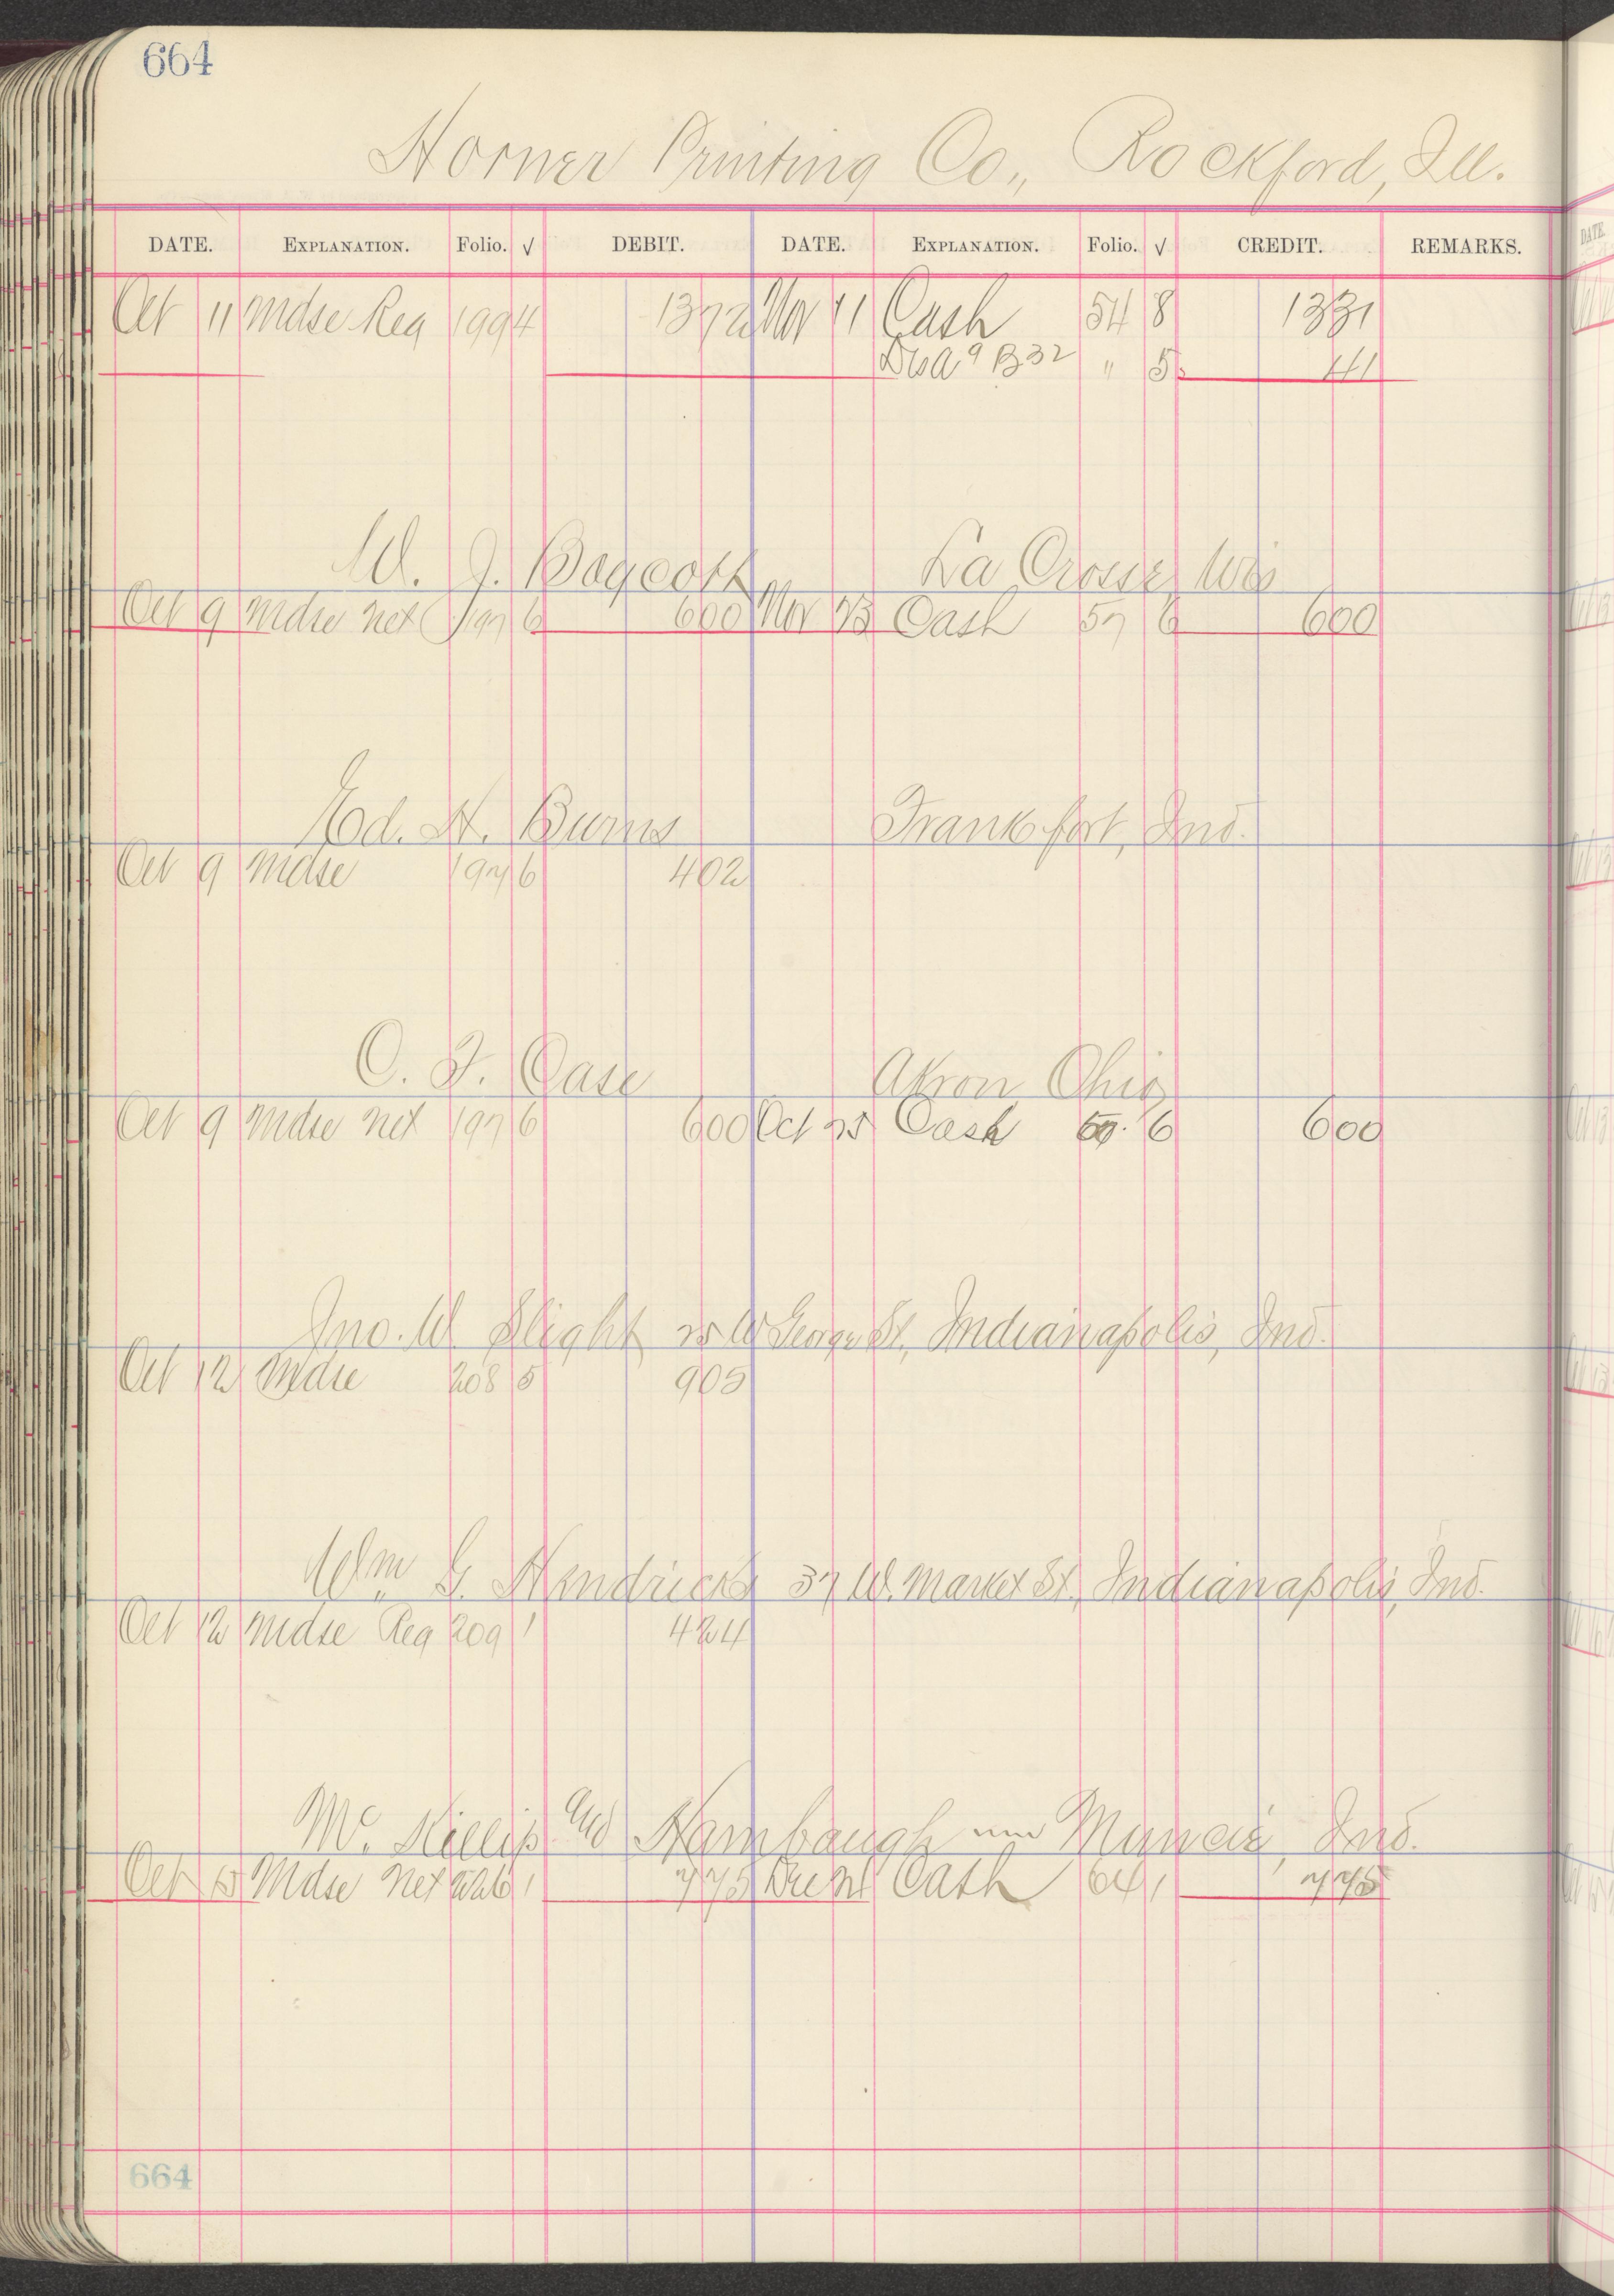 664
Horner Printing Co., Rockford, Ill.
DATE. EXPLANATION. Folio. √ DEBIT. DATE. EXPLANATION. Folio. √ CREDIT. REMARKS.
Oct 11 Mdse Reg 199 4 1372 Nov 11 Cash 54 8 1331
B32 " 5 41
W. J. Boycott La Crosse, Wis
Oct 9 Mdse Net 197 6 600 Nov 23 Cash 57 6 600
Ed. H. Burns Frankfort, Ind.
Oct 9 Mdse 197 6 402
C. F. Case Akron Ohio
Oct 9 Mdse Net 197 6 600 Oct 25 Cash 6 600
Jno. W. Slight W George St., Indianapolis, Ind.
Oct 12 Mdse 208 5 905
Wm G. Hendricks 37 W. Market St., Indianapolis, Ind.
Oct 12 Mdse Reg 209 1 424
Mc. Killip and Hambaugh Muncie, Ind.
Oct 15 Mdse Net 1 775 Cash 64 1 775
664